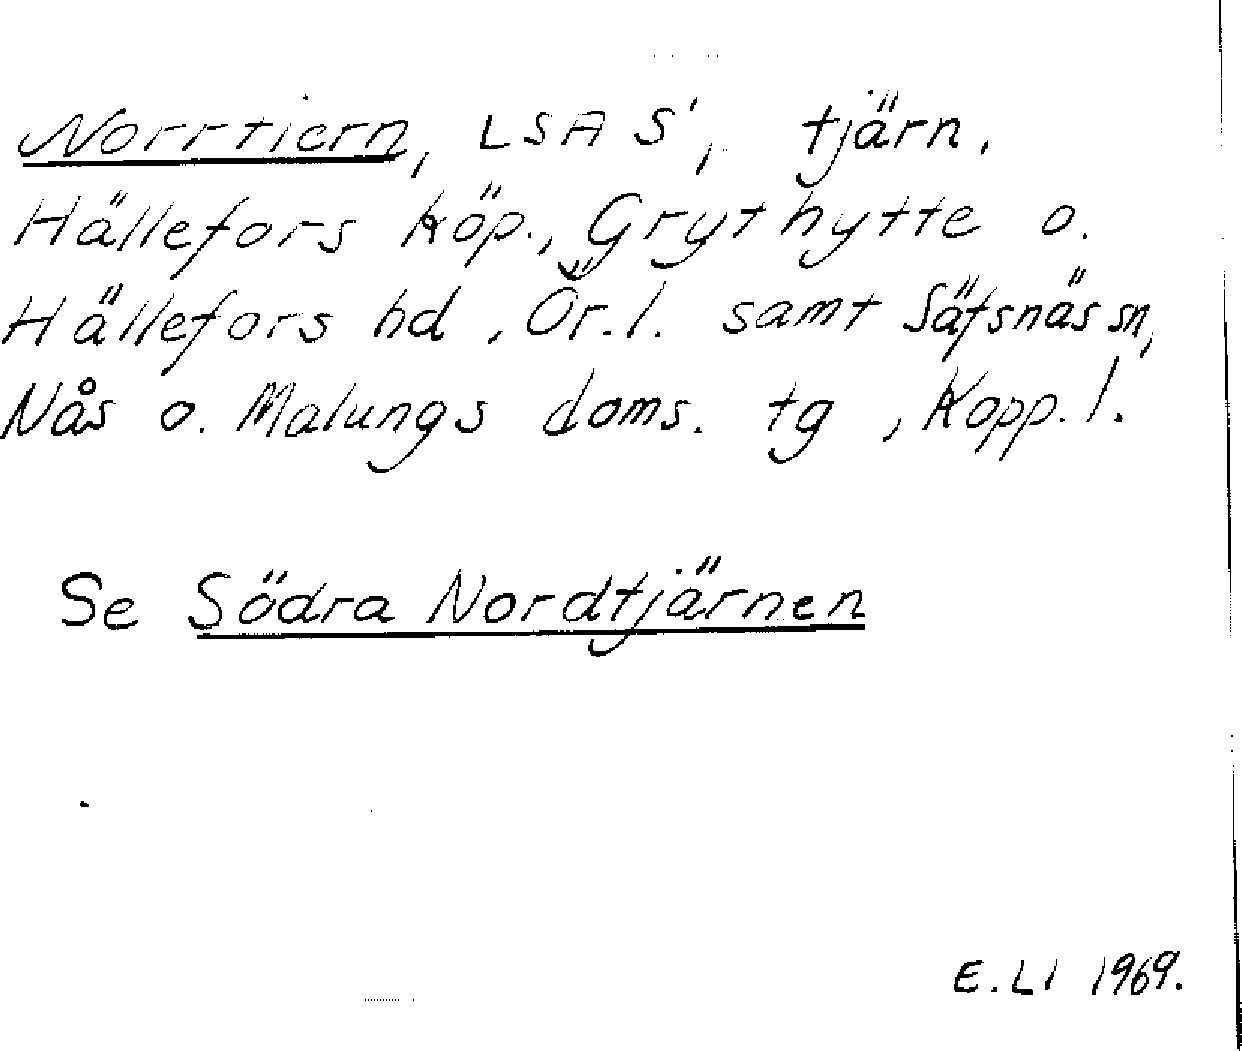 Norrtiern, LSA S', tjärn.
Hällefors köp., Grythytte o.
Hällefors hd, Ör.l. samt Säfsnäs sn,
Nås o. Malungs doms. tg, Kopp. l.
Se Södra Nordtjärnen
E. LI 1969.